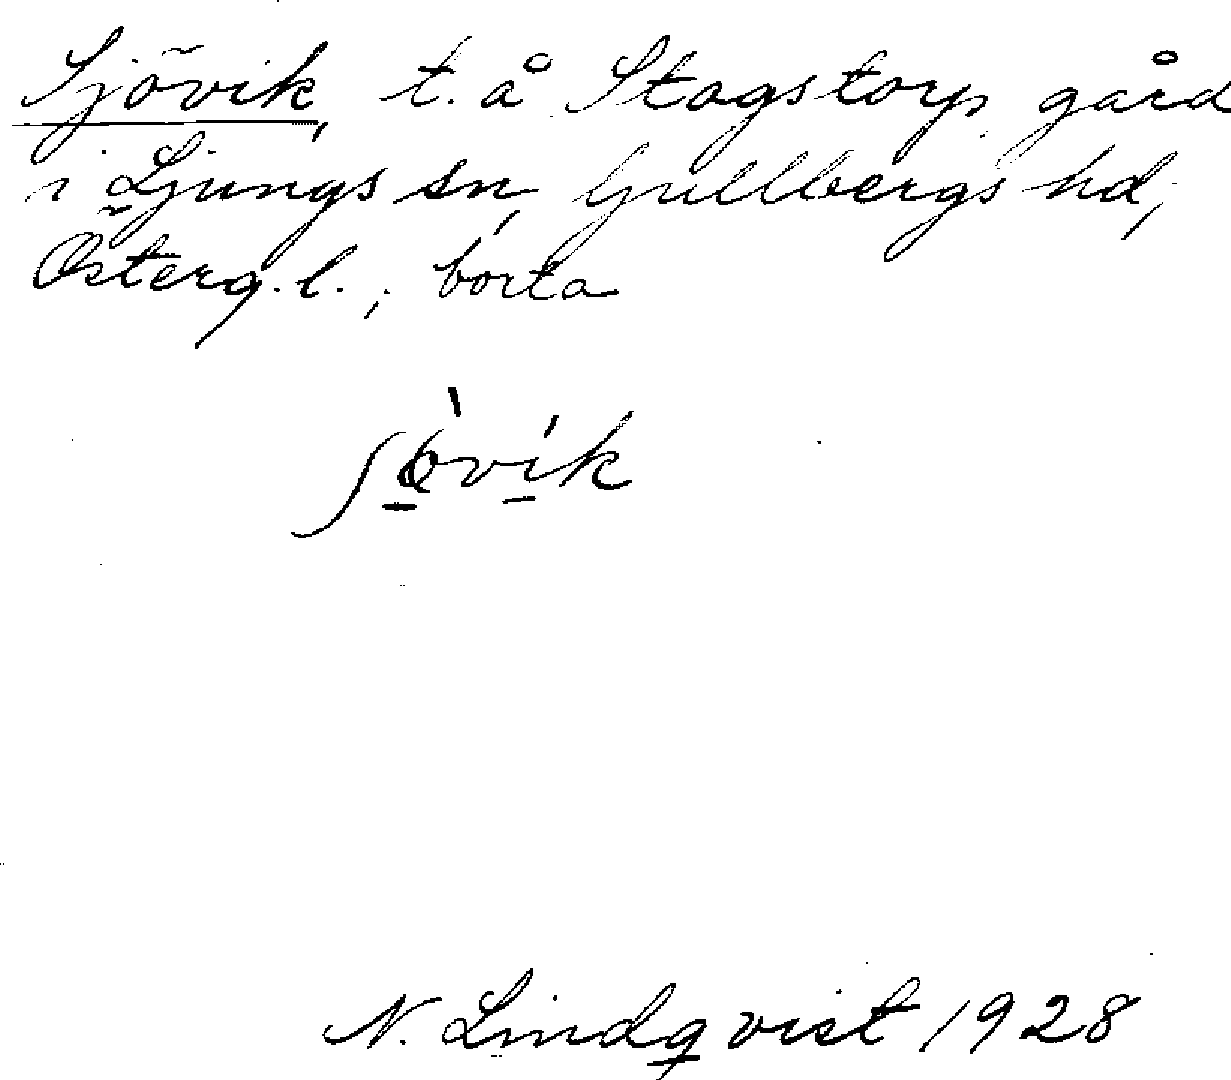 Sjövik, t. å Stagstorp gård
i Ljungs sn, Gullbergs hd,
Österg. l.; borta
ʃö̀vík
N. Lindqvist 1928